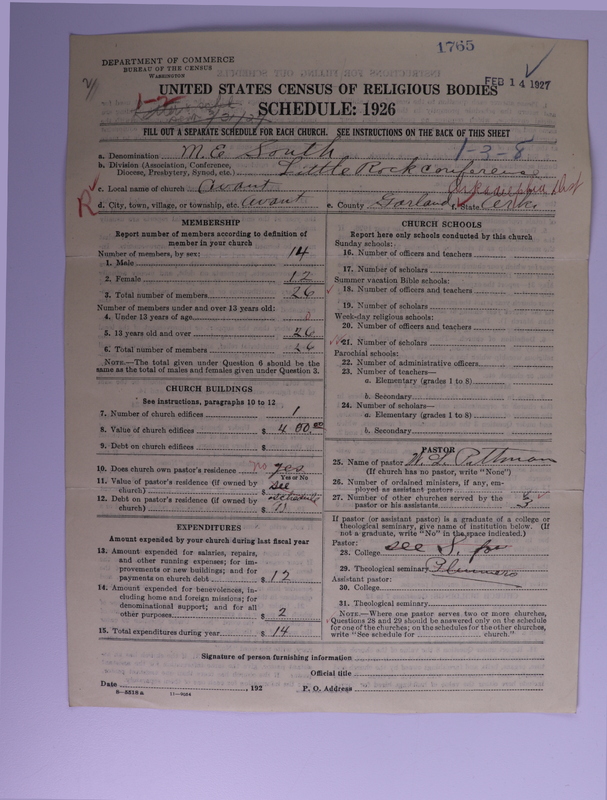 1765
DEPARTMENT OF COMMERCE
BUREAU OF THE CENSUS
WASHINGTON
FEB 14 1927
UNITED STATES CENSUS OF RELIGIOUS BODIES
SCHEDULE: 1926
FILL OUT A SEPARATE SCHEDULE FOR EACH CHURCH. SEE INSTRUCTIONS ON THE BACK OF THIS SHEET
a. Denomination M.E. South 1-3-8
b. Division (Association, Conference, Diocese, Presbytery, Synod, etc.) Little Rock Conference
Arkadelphia Dist
c. Local name of church Avant
R d. City, town, village, or township, etc. Avant e. County Garland f. State Ark.
MEMBERSHIP
Report number of members according to definition of member in your church
Number of members, by sex:
1. Male 14
2. Female 12
3. Total number of members 26
Number of members under and over 13 years old:
4. Under 13 years of age 0
5. 13 years old and over 26
6. Total number of members 26
NOTE.—The total given under Question 6 should be the same as the total of males and females given under Question 3.
CHURCH BUILDINGS
See instructions, paragraphs 10 to 12
7. Number of church edifices 1
8. Value of church edifices $ 400.00
9. Debt on church edifices $
10. Does church own pastor's residence no yes
Yes or No
11. Value of pastor's residence (if owned by church) $ see
12. Debt on pastor's residence (if owned by church) $ schedule
EXPENDITURES
Amount expended by your church during last fiscal year
13. Amount expended for salaries, repairs, and other running expenses; for improvements or new buildings; and for payments on church debt $ 12
14. Amount expended for benevolences, including home and foreign missions; for denominational support; and for all other purposes $ 2
15. Total expenditures during year $ 14
CHURCH SCHOOLS
Report here only schools conducted by this church
Sunday schools:
16. Number of officers and teachers
17. Number of scholars
Summer vacation Bible schools:
18. Number of officers and teachers
19. Number of scholars
Week-day religious schools:
20. Number of officers and teachers
21. Number of scholars
Parochial schools:
22. Number of administrative officers
23. Number of teachers—
a. Elementary (grades 1 to 8)
b. Secondary
24. Number of scholars—
a. Elementary (grades 1 to 8)
b. Secondary
PASTOR
25. Name of pastor W. L. Pittman
(If church has no pastor, write "None")
26. Number of ordained ministers, if any, employed as assistant pastors
27. Number of other churches served by the pastor or his assistants 3
If pastor (or assistant pastor) is a graduate of a college or theological seminary, give name of institution below. (If not a graduate, write "No" in the space indicated.)
Pastor:
28. College see S. for
29. Theological seminary Plummers
Assistant pastor:
30. College
31. Theological seminary
NOTE.—Where one pastor serves two or more churches, Questions 28 and 29 should be answered only on the schedule for one of the churches; on the schedules for the other churches, write "See schedule for church."
Signature of person furnishing information
Official title
Date , 192 P. O. Address
8—5518a 11—9084